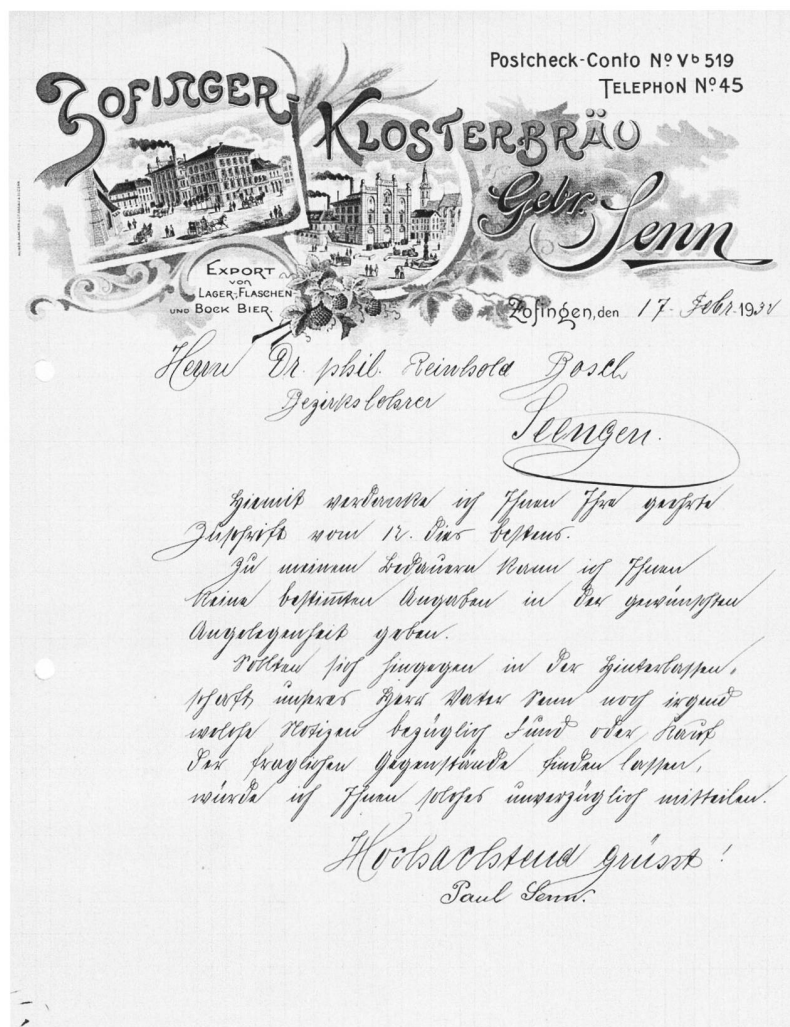 Postcheck-Conto No Vb 519
Telephon No 45
Zofinger-Klosterbräu
Gebr. Senn
Export
von
Lager-, Flaschen-
und Bock Bier.
Zofingen, den 17. Febr. 1932
Herrn Dr. phil. Reinhold Bosch
Bezirkslehrer
Seengen.
Hiemit verdanke ich Ihnen Ihre geehrte
Zuschrift vom 12. dies bestens.
Zu meinem Bedauern kann ich Ihnen
keine bestimmten Angaben in der gewünschten
Angelegenheit geben.
Sollten sich hingegen in der Hinterlassen-
schaft unseres Herr Vater Senn noch irgend
welche Notizen bezüglich Fund oder Kauf
der fraglichen Gegenstände finden lassen,
würde ich Ihnen solches unverzüglich mitteilen.
Hochachtend grüsst!
Paul Senn.